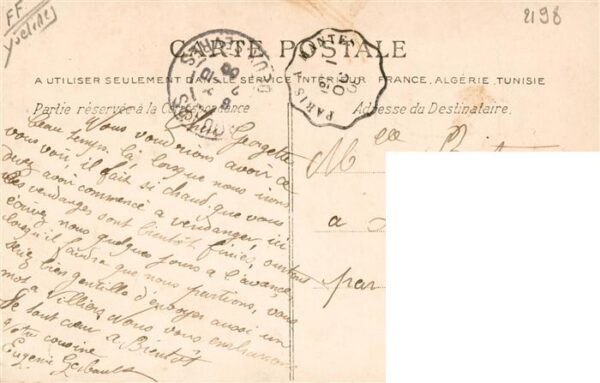 FF
Yvelines
2198
CARTE POSTALE
A UTILISER SEULEMENT DANS LE SERVICE INTÉRIEUR FRANCE, ALGÉRIE, TUNISIE
Partie réservée à la Correspondance
Adresse du Destinataire
PARIS MANTES
Chère Georgette
Nous voudrions avoir ce
beau temps là lorsque nous irons
vous voir, il fait si chaud, que vous
devez avoir commencé a vendanger, ici
les vendanges sont bientôt finies, surtout
écrivez nous quelques jours a l'avance
lorsqu'il faudra que nous partions, vous
serez bien gentille d'envoyer aussi un
mot a Villiers, Nous vous embrassons
de tout cœur a Bientôt
Votre cousine
Eugénie
Mlle
a
par